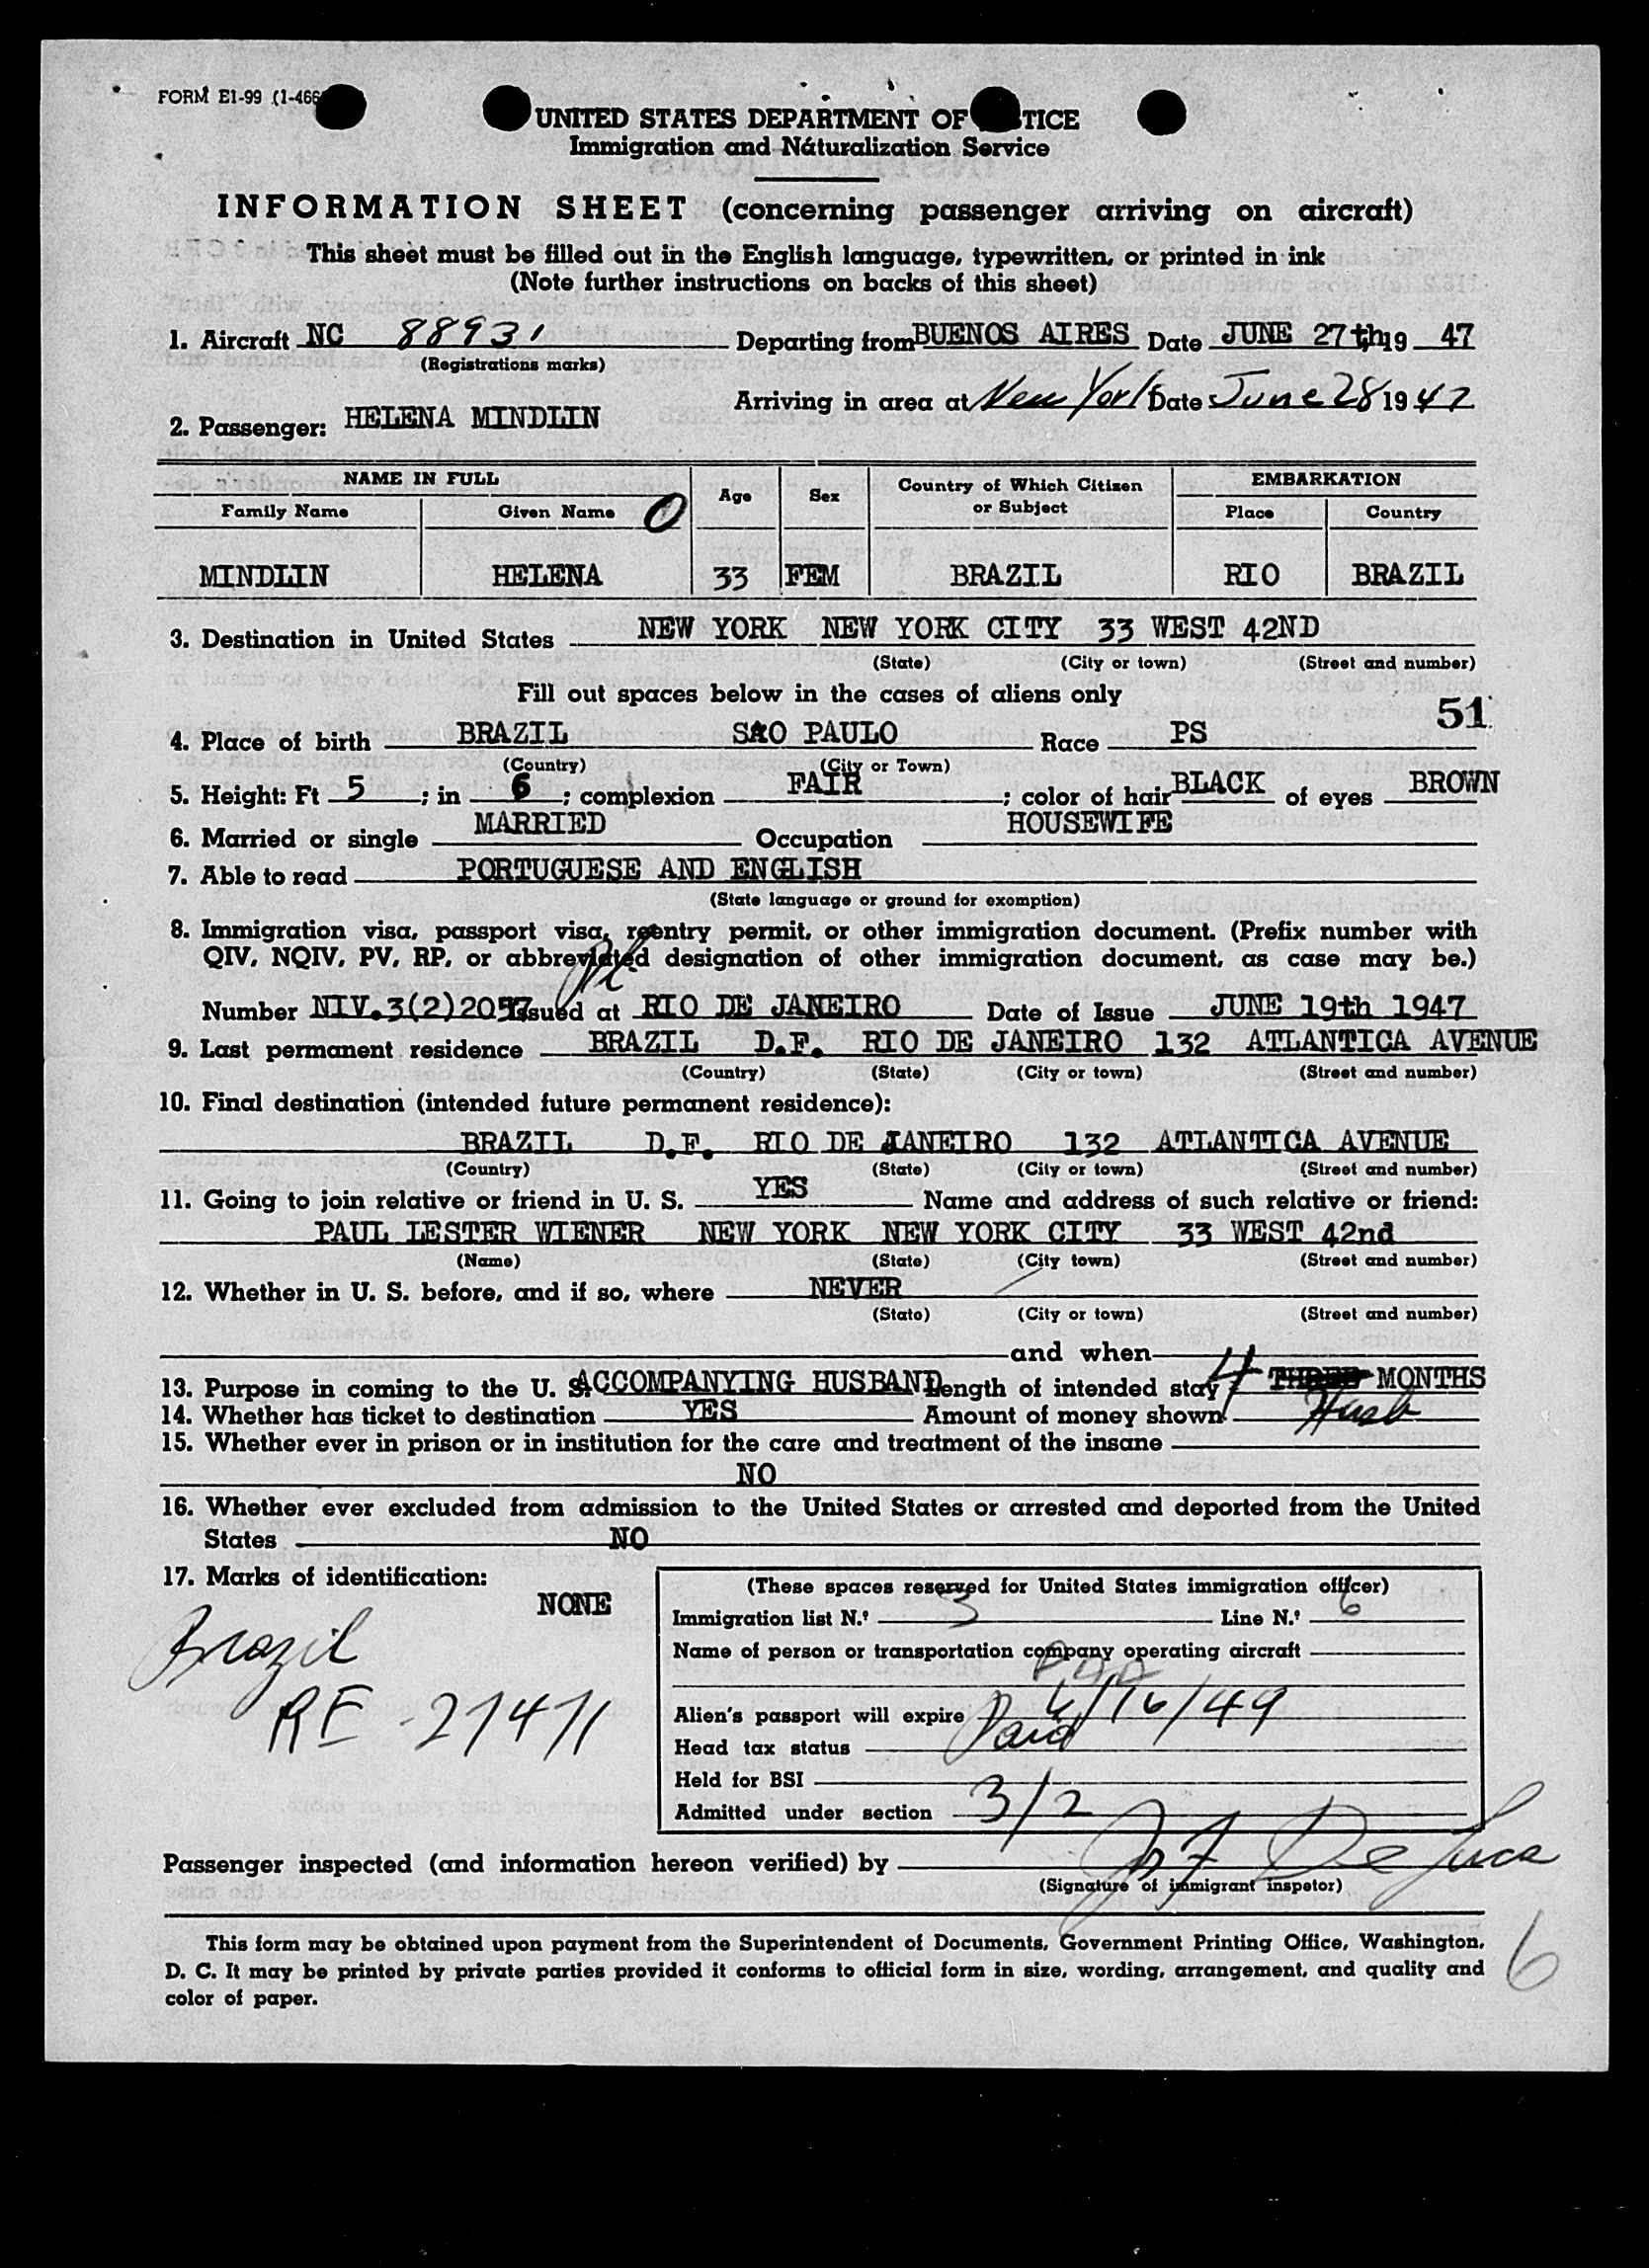 FORM E1-99 (1-466
UNITED STATES DEPARTMENT OF TICE
Immigration and Naturalization Service
INFORMATION SHEET (concerning passenger arriving on aircraft)
This sheet must be filled out in the English language, typewritten, or printed in ink
(Note further instructions on backs of this sheet)
1. Aircraft NC 88931 Departing from BUENOS AIRES Date JUNE 27th 19 47
(Registrations marks)
Arriving in area at New York Date June 28 1947
2. Passenger: HELENA MINDLIN
NAME IN FULL Age Sex Country of Which Citizen or Subject EMBARKATION
Family Name Given Name O Place Country
MINDLIN HELENA 33 FEM BRAZIL RIO BRAZIL
3. Destination in United States NEW YORK NEW YORK CITY 33 WEST 42ND
(State) (City or town) (Street and number)
Fill out spaces below in the cases of aliens only
51
4. Place of birth BRAZIL SAO PAULO Race PS
(Country) (City or Town)
5. Height: Ft 5 ; in 6 ; complexion FAIR ; color of hair BLACK of eyes BROWN
6. Married or single MARRIED Occupation HOUSEWIFE
7. Able to read PORTUGUESE AND ENGLISH
(State language or ground for exomption)
8. Immigration visa, passport visa, reentry permit, or other immigration document. (Prefix number with
QIV, NQIV, PV, RP, or abbreviated designation of other immigration document, as case may be.)
Number NIV.3(2)2057 Issued at RIO DE JANEIRO Date of Issue JUNE 19th 1947
9. Last permanent residence BRAZIL D.F. RIO DE JANEIRO 132 ATLANTICA AVENUE
(Country) (State) (City or town) (Street and number)
10. Final destination (intended future permanent residence):
BRAZIL D.F. RIO DE JANEIRO 132 ATLANTICA AVENUE
(Country) (State) (City or town) (Street and number)
11. Going to join relative or friend in U. S. YES Name and address of such relative or friend:
PAUL LESTER WIENER NEW YORK NEW YORK CITY 33 WEST 42nd
(Name) (State) (City town) (Street and number)
12. Whether in U. S. before, and if so, where NEVER
(State) (City or town) (Street and number)
and when
13. Purpose in coming to the U. S. ACCOMPANYING HUSBAND Length of intended stay 4 THREE MONTHS
14. Whether has ticket to destination YES Amount of money shown Husb
15. Whether ever in prison or in institution for the care and treatment of the insane
NO
16. Whether ever excluded from admission to the United States or arrested and deported from the United
States NO
17. Marks of identification:
NONE
Brazil
RE-27471
(These spaces reserved for United States immigration officer)
Immigration list N.º 3 Line N.º 6
Name of person or transportation company operating aircraft
PAA
Alien's passport will expire 6/16/49
Head tax status Paid
Held for BSI
Admitted under section 3/2
Passenger inspected (and information hereon verified) by De Luca
(Signature of immigrant inspetor)
This form may be obtained upon payment from the Superintendent of Documents, Government Printing Office, Washington,
D. C. It may be printed by private parties provided it conforms to official form in size, wording, arrangement, and quality and
color of paper.
6